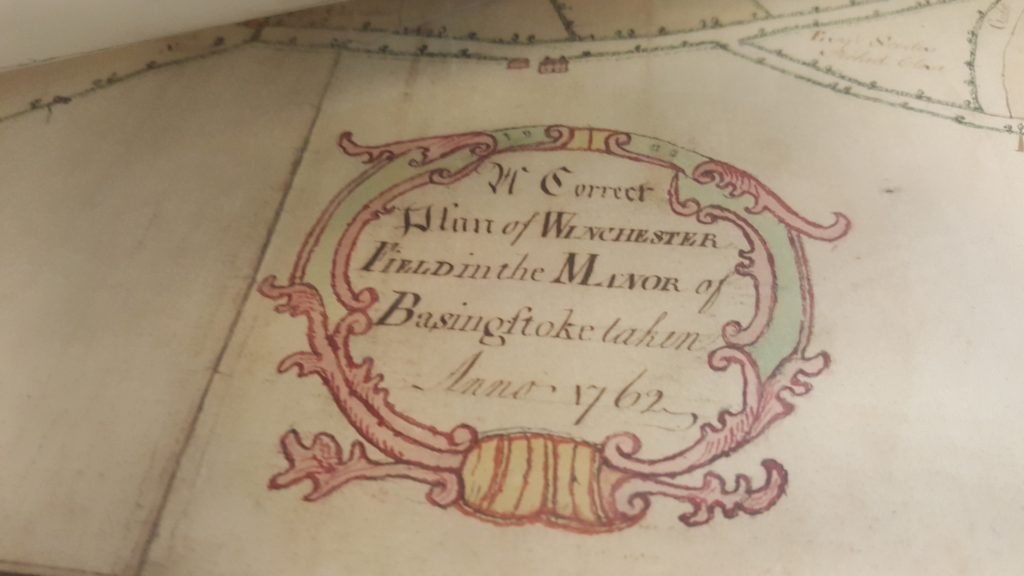 A Correct
Plan of WINCHESTER
FIELD in the MANOR of
Basingſtoke taken
Anno 1762